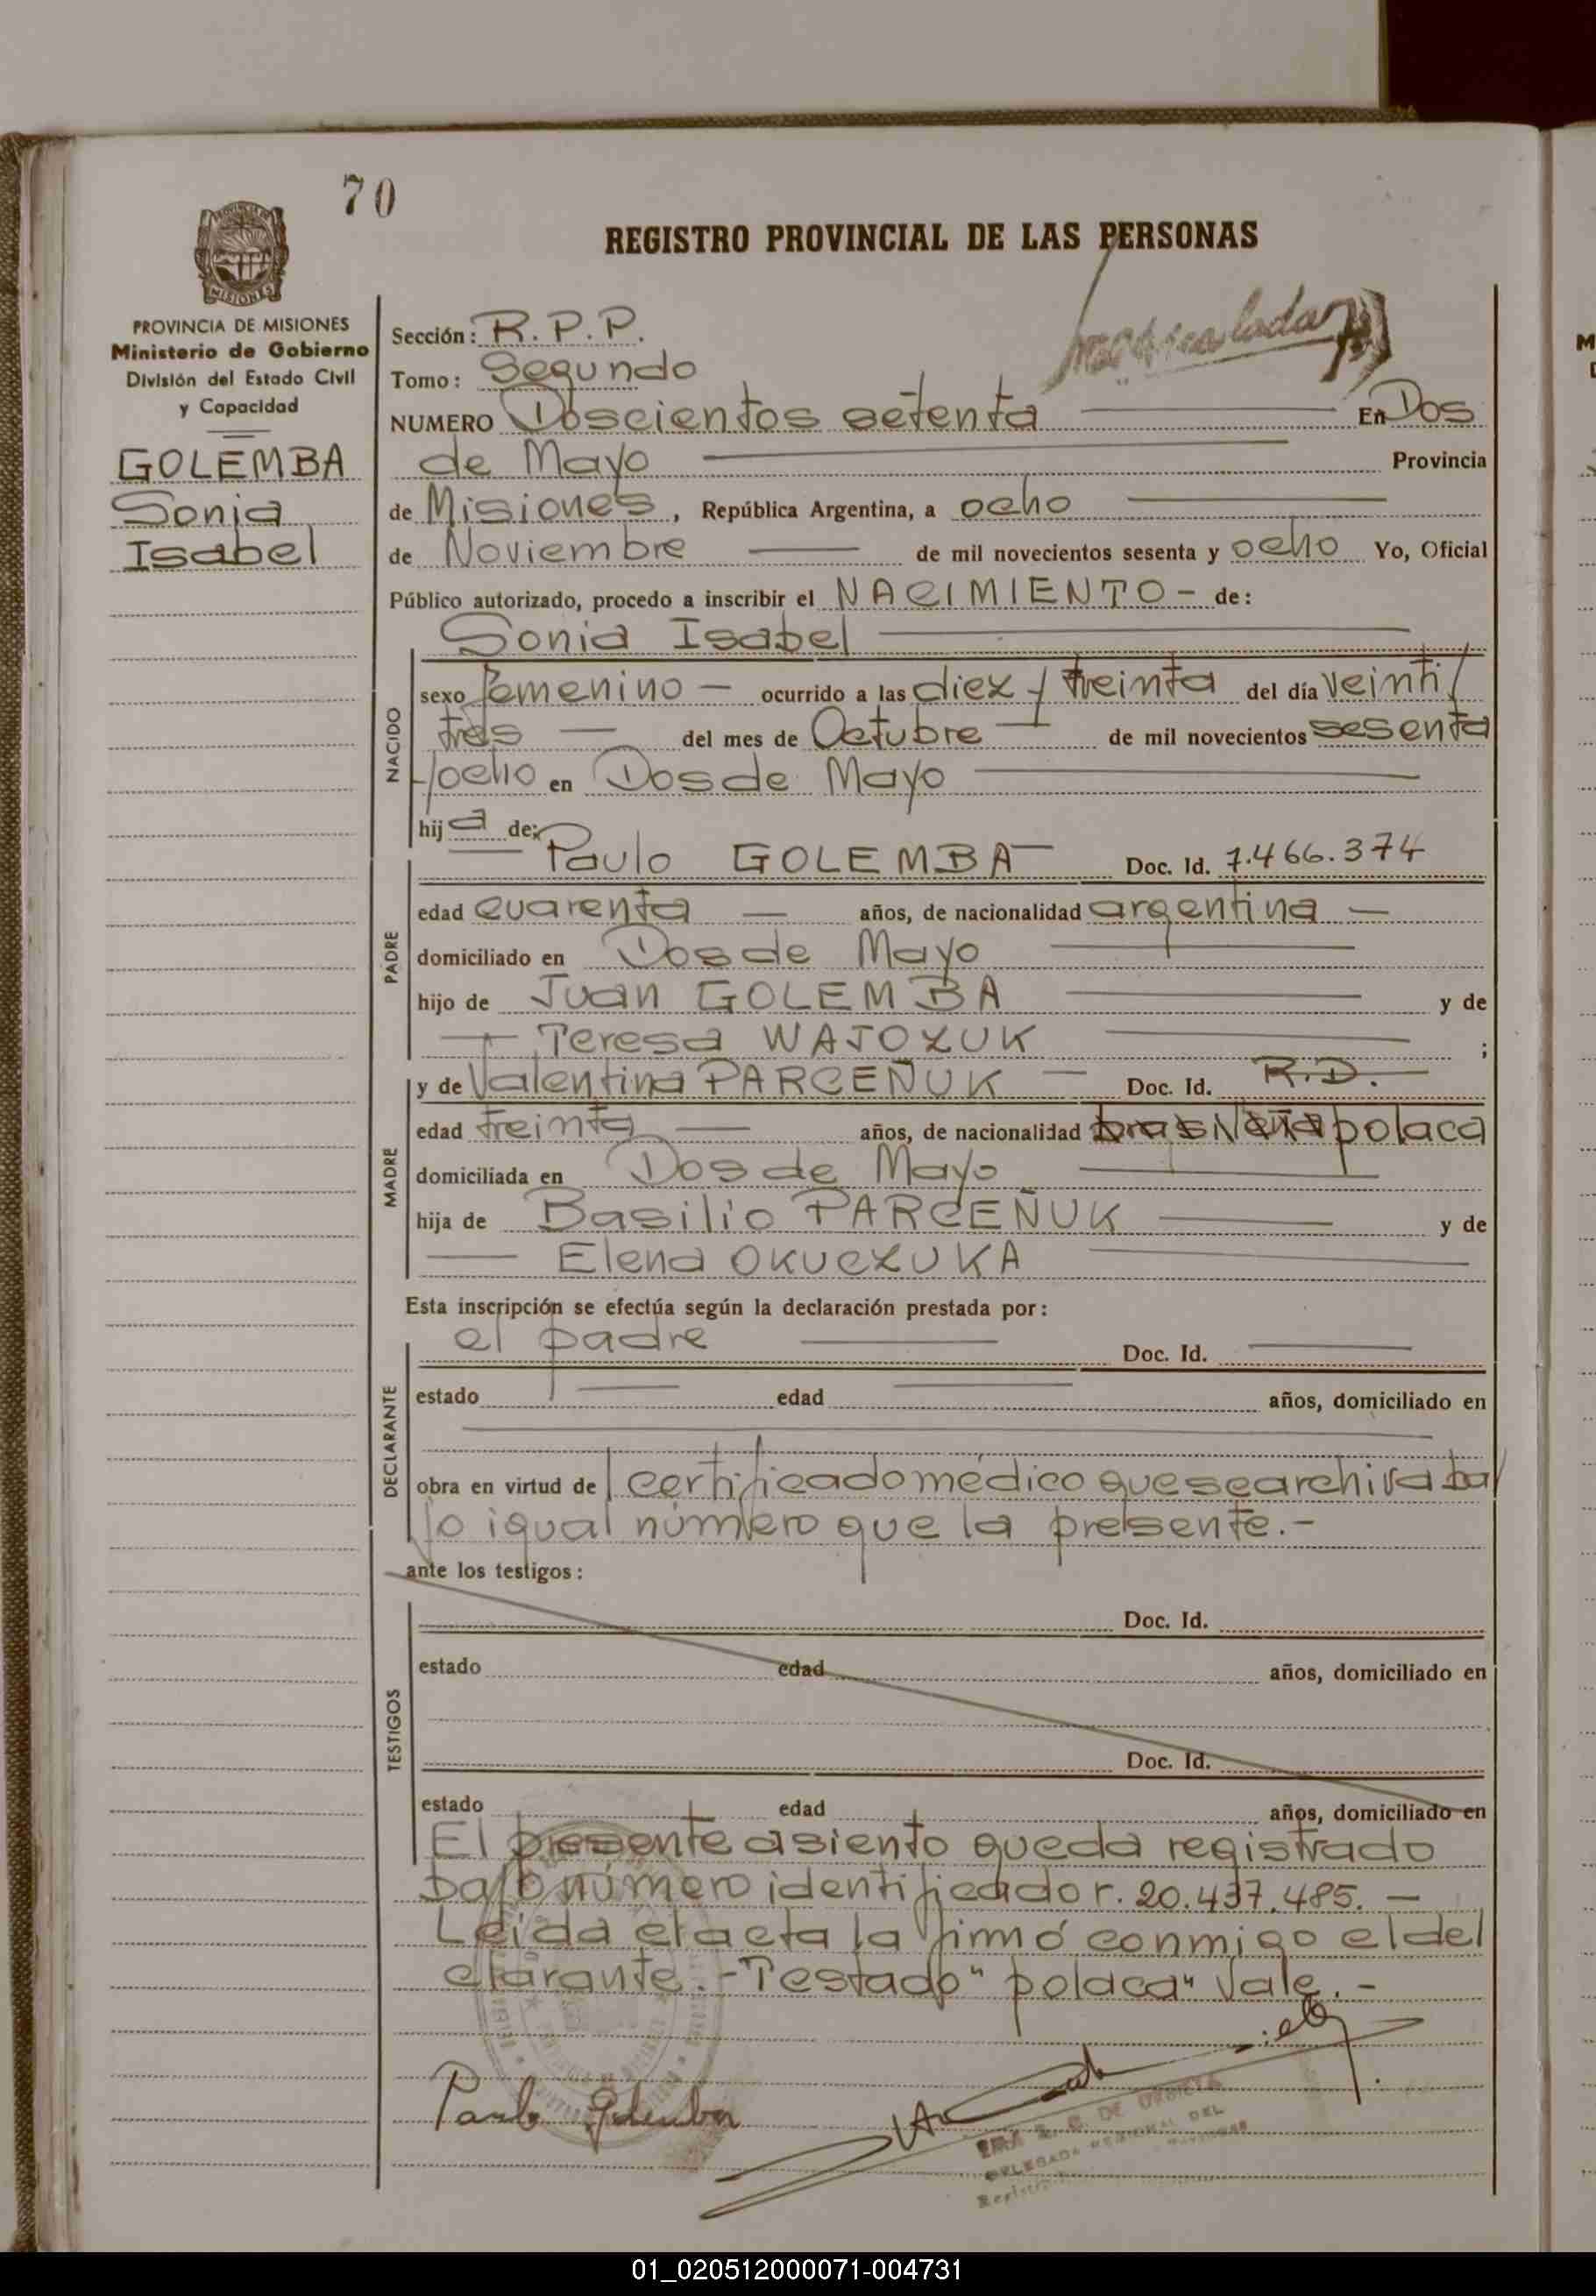 70
REGISTRO PROVINCIAL DE LAS PERSONAS
PROVINCIA DE MISIONES
Ministerio de Gobierno
División del Estado Civil
y Capacidad
GOLEMBA
Sonia
Isabel
Sección: R.P.P.
Tomo: Segundo
NUMERO Doscientos setenta En Dos
de Mayo Provincia
de Misiones, República Argentina, a ocho
de Noviembre de mil novecientos sesenta y ocho Yo, Oficial
Público autorizado, procedo a inscribir el NACIMIENTO - de:
Sonia Isabel
NACIDO
sexo femenino - ocurrido a las diez y treinta del día veinti/
trés del mes de Octubre de mil novecientos sesenta
y ocho en Dos de Mayo
hija de:
Paulo GOLEMBA Doc. Id. 7.466.374
PADRE
edad cuarenta años, de nacionalidad argentina
domiciliado en Dos de Mayo
hijo de Juan GOLEMBA y de
Teresa WAJOZUK ;
y de Valentina PARCEÑUK Doc. Id. R.D.
MADRE
edad treinta años, de nacionalidad polaca
domiciliada en Dos de Mayo
hija de Basilio PARCEÑUK y de
Elena OKUCZUKA
Esta inscripción se efectúa según la declaración prestada por:
el padre Doc. Id.
DECLARANTE
estado edad años, domiciliado en
obra en virtud de l certificado médico que se archiva ba/
jo igual número que la presente.-
ante los testigos:
TESTIGOS
Doc. Id.
estado edad años, domiciliado en
Doc. Id.
estado edad años, domiciliado en
El presente asiento queda registrado
bajo número identificador. 20.437.485. -
Leída el acta la firmó conmigo el de/
clarante.- Testado "polaca" Vale.-
Paulo Golemba
01_020512000071-004731